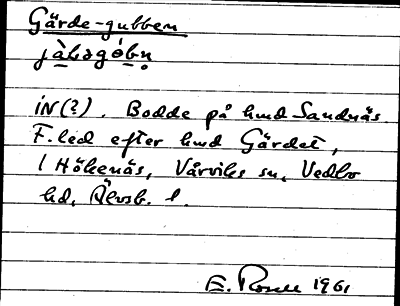 Gärde-gubben
jàḷəgóbn̥
iN(?). Bodde på hmd Sandnäs
F. led efter hmd Gärdet,
i Hökenäs, Vårviks sn, Vedbo
hd, Älvsb. l.
E. Rosell 1961